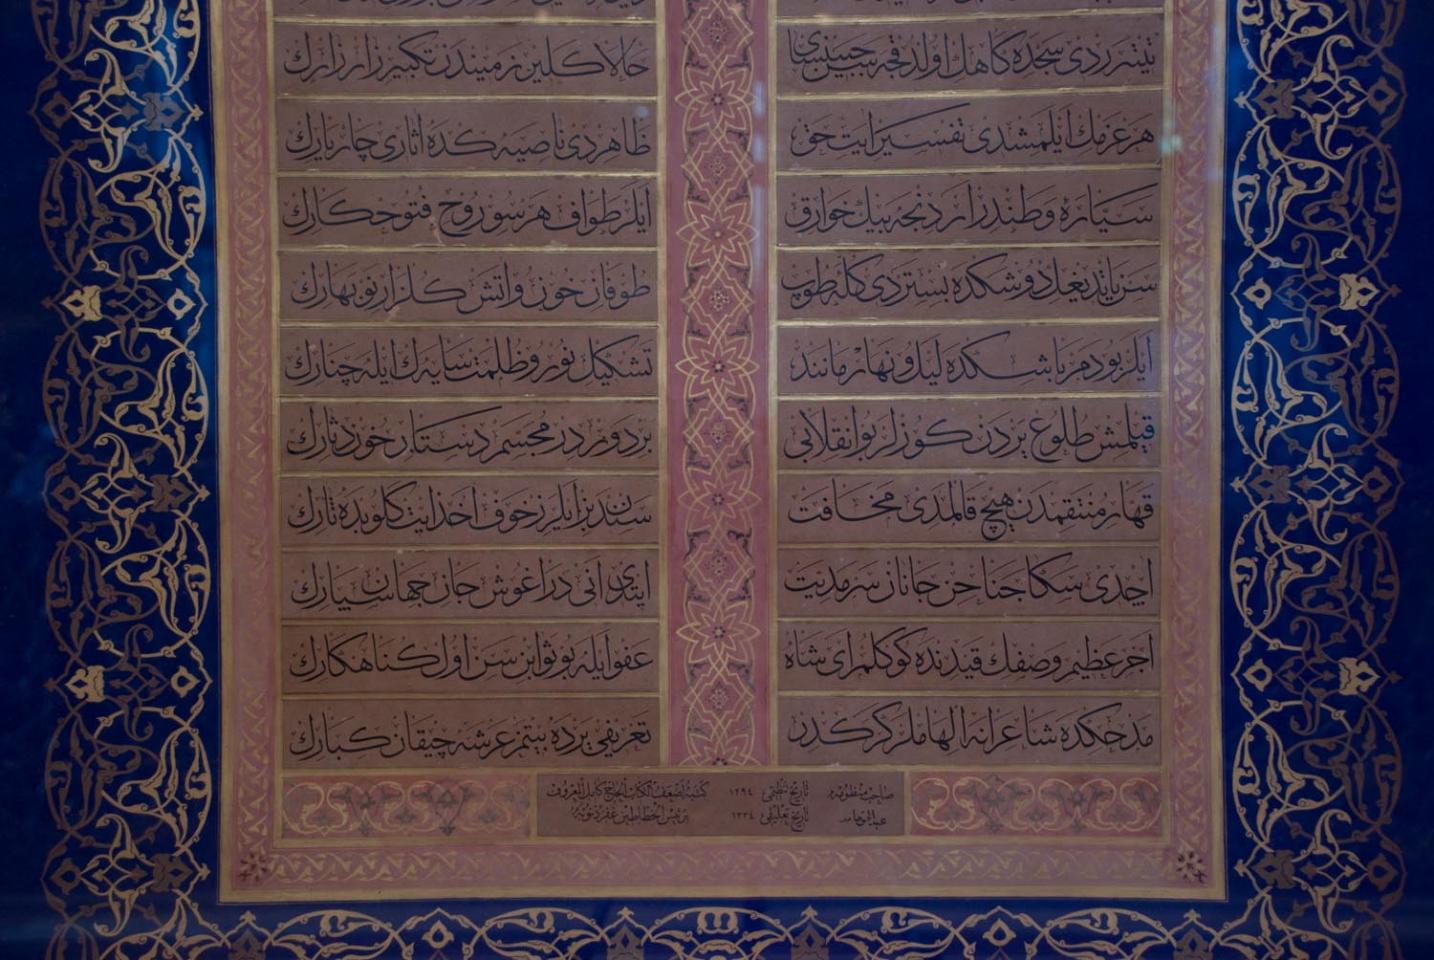 تیترردی سجده‌کاهك اولدقجه بیت حسینسای
حالا كلیر زمیندن تكبیر زار زارك
هر غزمك ایلمشدی تفسیر ایت حق
ظاهردی ناصیه‌كده اثاری چار یارك
سیاره وطندر ارد نجه بیك خوارق
ایلر طواف هر سو روح فتوحكارك
سنر یاندیغك دوشكده بستردی كله طوپ
طوفان خون و اتش كلزار نوبهارك
ایلر بو دم باشكده لیل و نهار مانند
تشكیل نور و ظلمت سایه‌ك ایله چنارك
قیلمش طلوع یردن كوزلر بو انقلابی
بر دور در مجسم دستار خوندثارك
قهار منتقمدن هیچ قالمدی مخافت
سندن بز ایلرز خوف اخذ ایت كلوبده ثارك
ایجدی سكا جناحن جانان سرمدیت
ایتدی انی دراغوش جان جهان سپارك
اجر عظیم وصفك قیدنده كوكلم ای شاه
عفو ایله بو ثوابن سن اول كناهكارك
مدحكده شاعرانه الهاملر كركدر
تعریفی یرده بیتمز عرشه چیقان كبارك
صاحب منظومه
عبدالحق حامد
تاریخ نظمی ١٢٩٤
تاریخ تعلیقی ١٣٣٤
كتبه اضعف الكتاب الحاج كامل المعروف
برئیس الخطاطین غفر ذنوبه